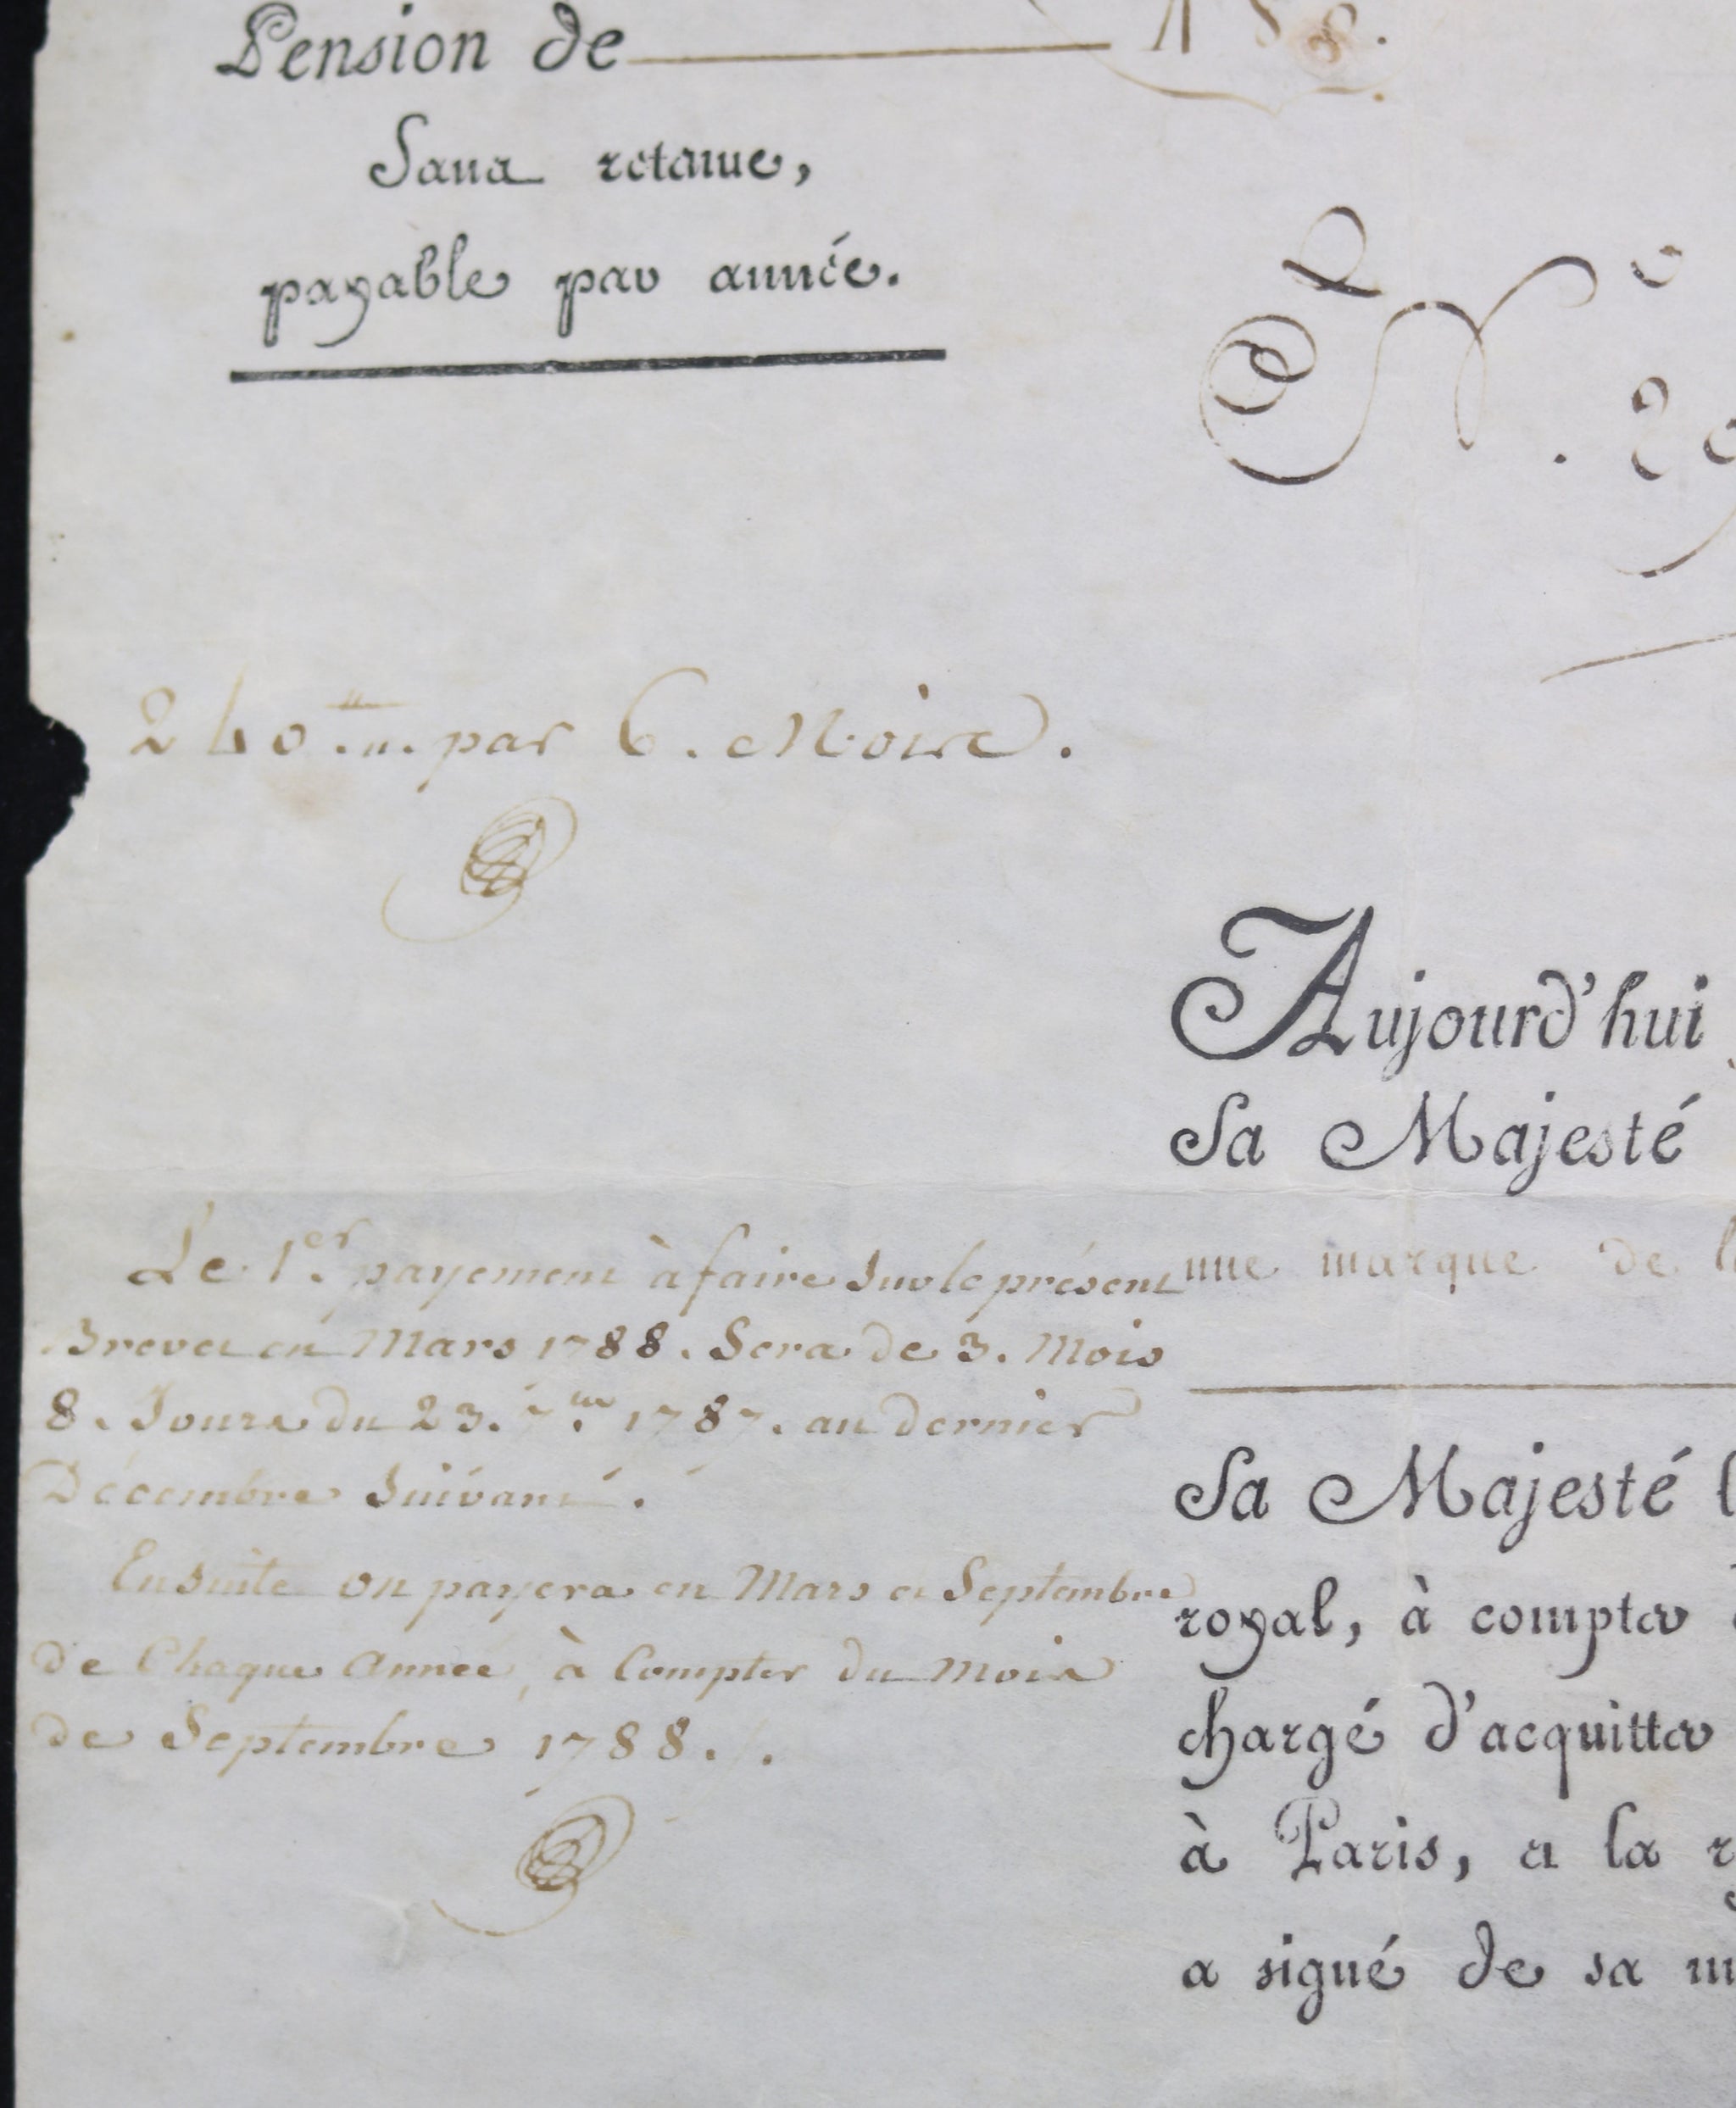 Pension de
Sans retenue,
payable par année.
N.º
240 ₶ par 6. Mois.
Aujourd'hui
Sa Majesté
Le 1.er payement à faire sur le présent
Brevet en Mars 1788. Sera de 3. Mois
8. Jours du 23. 7.bre 1787. au dernier
Décembre suivant.
Ensuite on payera en Mars et Septembre
de Chaque Année, à Compter du mois
de Septembre 1788.
une marque de
Sa Majesté
royal, à compter
chargé d'acquitter
à Paris, et la
a signé de sa